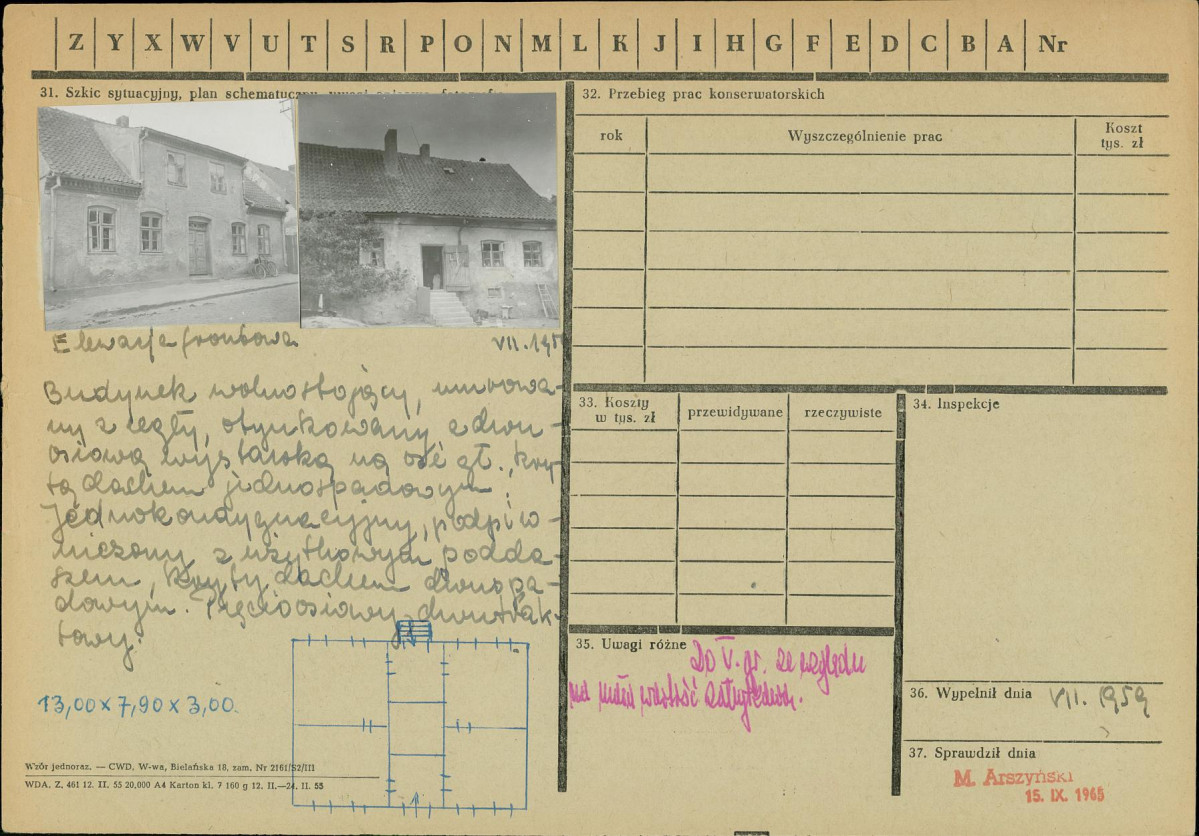 Z Y X W V U T S R P O N M L K J I H G F E D C B A Nr
31. Szkic sytuacyjny, plan schematyczny, uwagi
Elewacja frontowa
VII.195
Budynek wolnostojący, murowa-
ny z cegły, otynkowany z dwu-
osiową wystawką na osi gł., kry-
tą dachem jednospadowym.
Jednokondygnacyjny, podpiw-
niczony z użytkowym podda-
szem, kryty dachem dwuspa-
dowym. Pięcioosiowy, dwutrak-
towy.
13,00 x 7,90 x 3,00.
Wzór jednoraz. — CWD, W-wa, Bielańska 18, zam. Nr 2161/S2/III
WDA. Z. 461 12. II. 55 20,000 A4 Karton kl. 7 160 g 12. II.—24. II. 55
32. Przebieg prac konserwatorskich
rok
Wyszczególnienie prac
Koszt
tys. zł
33. Koszty
w tys. zł
przewidywane
rzeczywiste
34. Inspekcje
35. Uwagi różne
Do V. gr. ze względu
na małą wartość zabytkową.
36. Wypełnił dnia
VII. 1959
37. Sprawdził dnia
M. Arszyński
15. IX. 1965